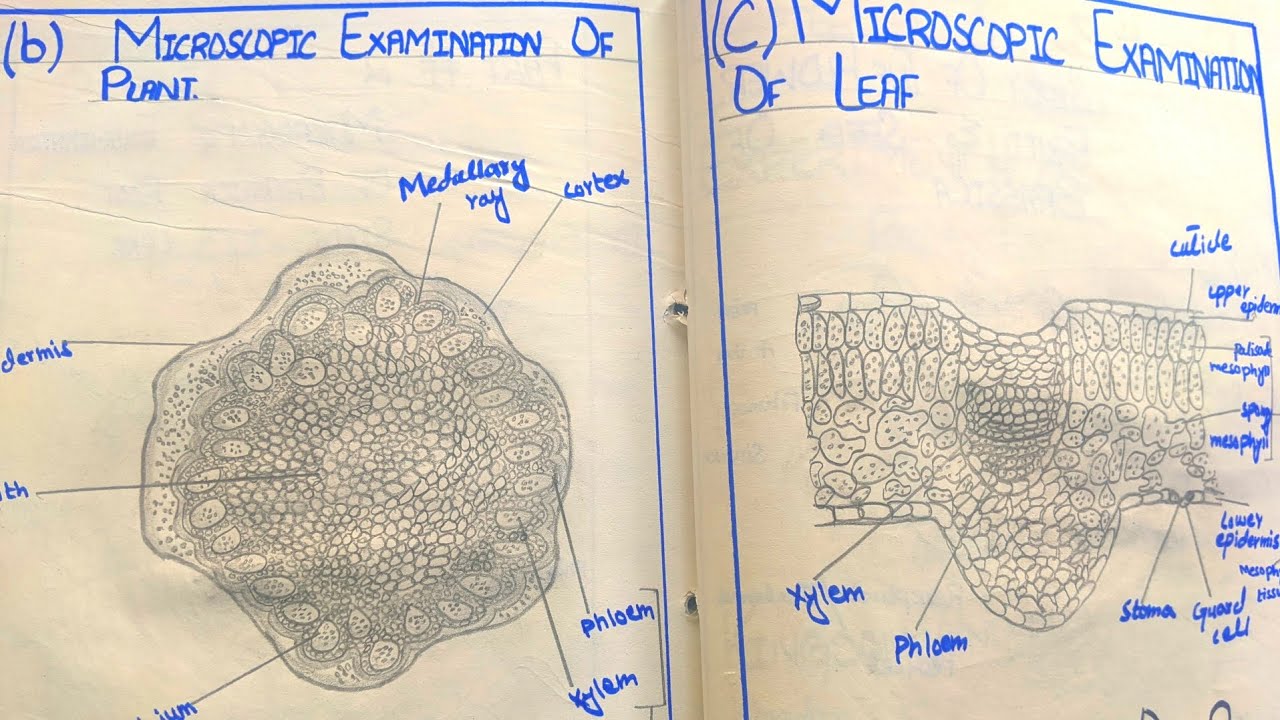 (b) MICROSCOPIC EXAMINATION OF
PLANT.
Medallary
ray
cortex
dermis
ith
phloem
xylem
ium
(C) MICROSCOPIC EXAMINATION
OF LEAF
cuticle
upper
epiderm
palisade
mesophyll
spong
mesophyll
Lower
epidermis
mesoph
tissu
xylem
Phloem
Stoma
Guard
cell